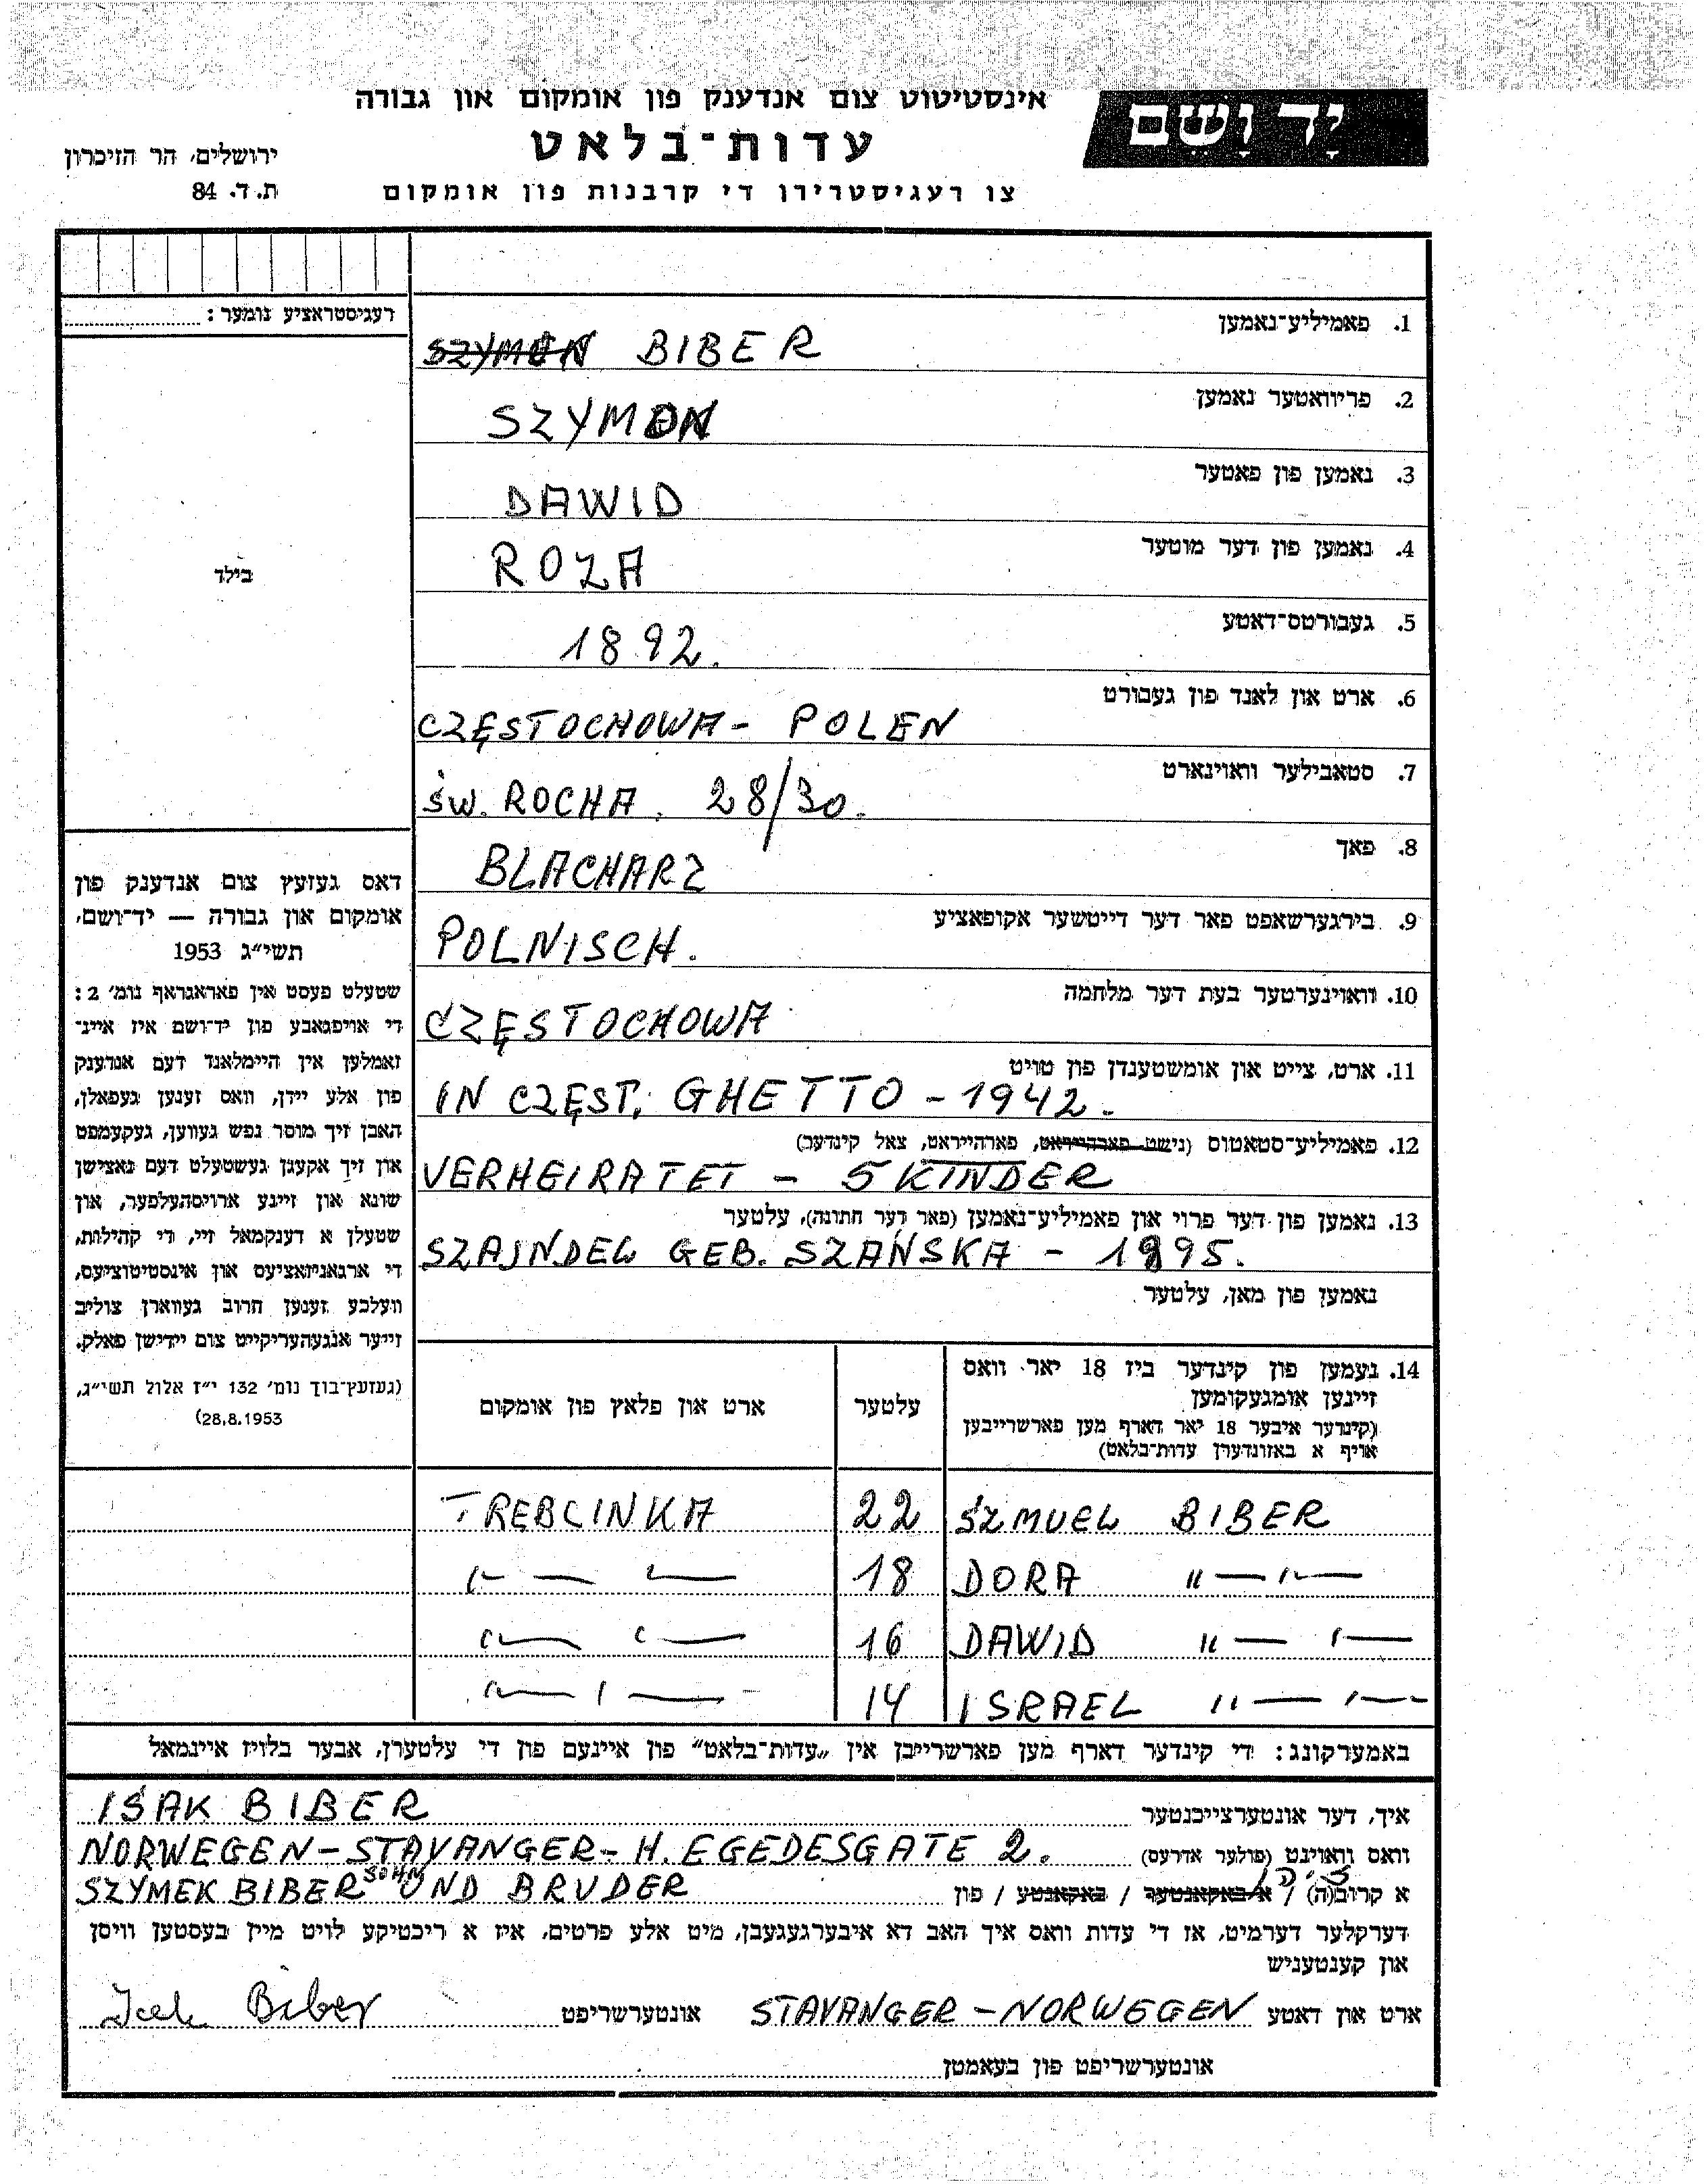 יָד וָשֵׁם
אינסטיטוט צום אנדענק פון אומקום און גבורה
עדות־בלאט
צו רעגיסטרירן די קרבנות פון אומקום
ירושלים, הר הזיכרון
ת. ד. 84
רעגיסטראציע נומער :
בילד
דאס געזעץ צום אנדענק פון
אומקום און גבורה — יד־ושם,
תשי״ג 1953
שטעלט פעסט אין פאראגראף נומ׳ 2 :
די אויפגאבע פון יד־ושם איז איינ־
זאמלען אין היימלאנד דעם אנדענק
פון אלע יידן, וואס זענען געפאלן,
האבן זיך מוסר נפש געווען, געקעמפט
און זיך אקעגן געשטעלט דעם נאצישן
שונא און זיינע ארויסהעלפער, און
שטעלן א דענקמאל זיי, די קהילות,
די ארגאניזאציעס און אינסטיטוציעס,
וועלכע זענען חרוב געווארן צוליב
זייער אנגעהעריקייט צום יידישן פאלק.
(געזעץ־בוך נומ׳ 132 י״ז אלול תשי״ג,
28.8.1953)
1. פאמיליע־נאמען
SZYMON BIBER
2. פריוואטער נאמען
SZYMON
3. נאמען פון פאטער
DAWID
4. נאמען פון דער מוטער
ROZA
5. געבורטס־דאטע
1892.
6. ארט און לאנד פון געבורט
CZĘSTOCHOWA - POLEN
7. סטאבילער וואוינארט
ŚW. ROCHA. 28/30.
8. פאך
BLACHARZ
9. בירגערשאפט פאר דער דייטשער אקופאציע
POLNISCH.
10. וואוינערטער בעת דער מלחמה
CZĘSTOCHOWA
11. ארט, צייט און אומשטענדן פון טויט
IN CZĘST. GHETTO - 1942.
12. פאמיליע־סטאטוס (נישט פארהייראט, פארהייראט, צאל קינדער)
VERHEIRATET - 5 KINDER
13. נאמען פון דער פרוי און פאמיליע־נאמען (פאר דער חתונה), עלטער
SZAJNDEL GEB. SZAŃSKA - 1895.
נאמען פון מאן, עלטער
14. נעמען פון קינדער ביז 18 יאר וואס
זיינען אומגעקומען
(קינדער איבער 18 יאר דארף מען פארשרייבען
אויף א באזונדערן עדות־בלאט)
עלטער
ארט און פלאץ פון אומקום
SZMUEL BIBER 22 TREBLINKA
DORA " — " — 18 " — " —
DAWID " — " — 16 " — " —
ISRAEL " — " — 14 " — " —
באמערקונג: די קינדער דארף מען פארשרייבן אין „עדות־בלאט" פון איינעם פון די עלטערן, אבער בלויז איינמאל
איך, דער אונטערצייכנטער ISAK BIBER
וואס וואוינט (פולער אדרעס) NORWEGEN - STAVANGER - H. EGEDESGATE 2.
א קרוב(ה) / א באקאנטער / באקאנטע / פון SZYMEK BIBER SOHN UND BRUDER
דערקלער דערמיט, אז די עדות וואס איך האב דא איבערגעגעבן, מיט אלע פרטים, איז א ריכטיקע לויט מיין בעסטען וויסן
און קענטעניש
ארט און דאטע STAVANGER - NORWEGEN אונטערשריפט Isak Biber
אונטערשריפט פון בעאמטן